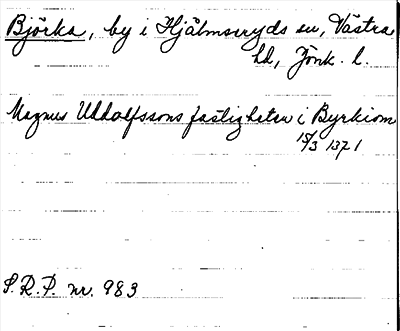 Björka, by i Hjälmseryds sn, Västra
hd, Jönk. l.
Magnus Uddolfssons fastigheter i Byrkiom
15/3 1371
S.R.P. nr. 983